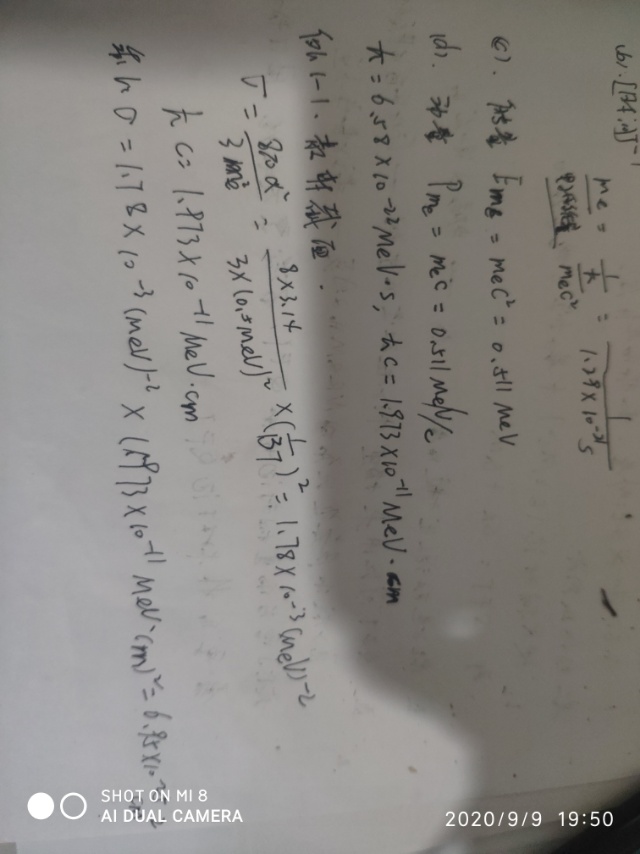 (b). [时间]⁻¹
me = 1/ħ/mec² = 1/1.29×10⁻²¹s
(c). 能量 Eme = mec² = 0.511 MeV
(d). 动量 Pme = mec = 0.511 MeV/c
ħ = 6.58×10⁻²² MeV·s, ħc = 1.973×10⁻¹¹ MeV·cm
例1-1. 散射截面.
σ = 8πα²/3me² = 8×3.14/3×(0.5MeV)² ×(1/137)² = 1.78×10⁻³(MeV)⁻²
ħc = 1.973×10⁻¹¹ MeV·cm
σ = 1.78×10⁻³(MeV)⁻² × (1.973×10⁻¹¹ MeV·cm)² =
SHOT ON MI 8
AI DUAL CAMERA
2020/9/9 19:50